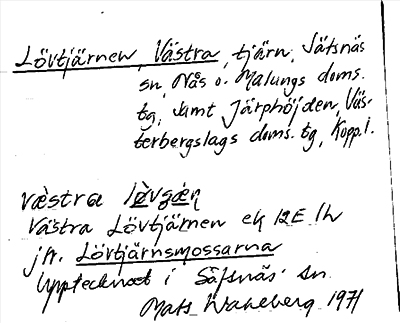 Lövtjärnen, Västra, tjärn, Säfsnäs
sn, Nås o. Malungs doms.
tg, samt Järphöjden, Väs-
terbergslags doms. tg, Kopp. l.
væ̀stra lø̀vgæ̣ṇ
Västra Lövtjärnen ek 12E 1h
jfr. Lövtjärnsmossarna
Upptecknat i Säfsnäs sn.
Mats Wahlberg 1971